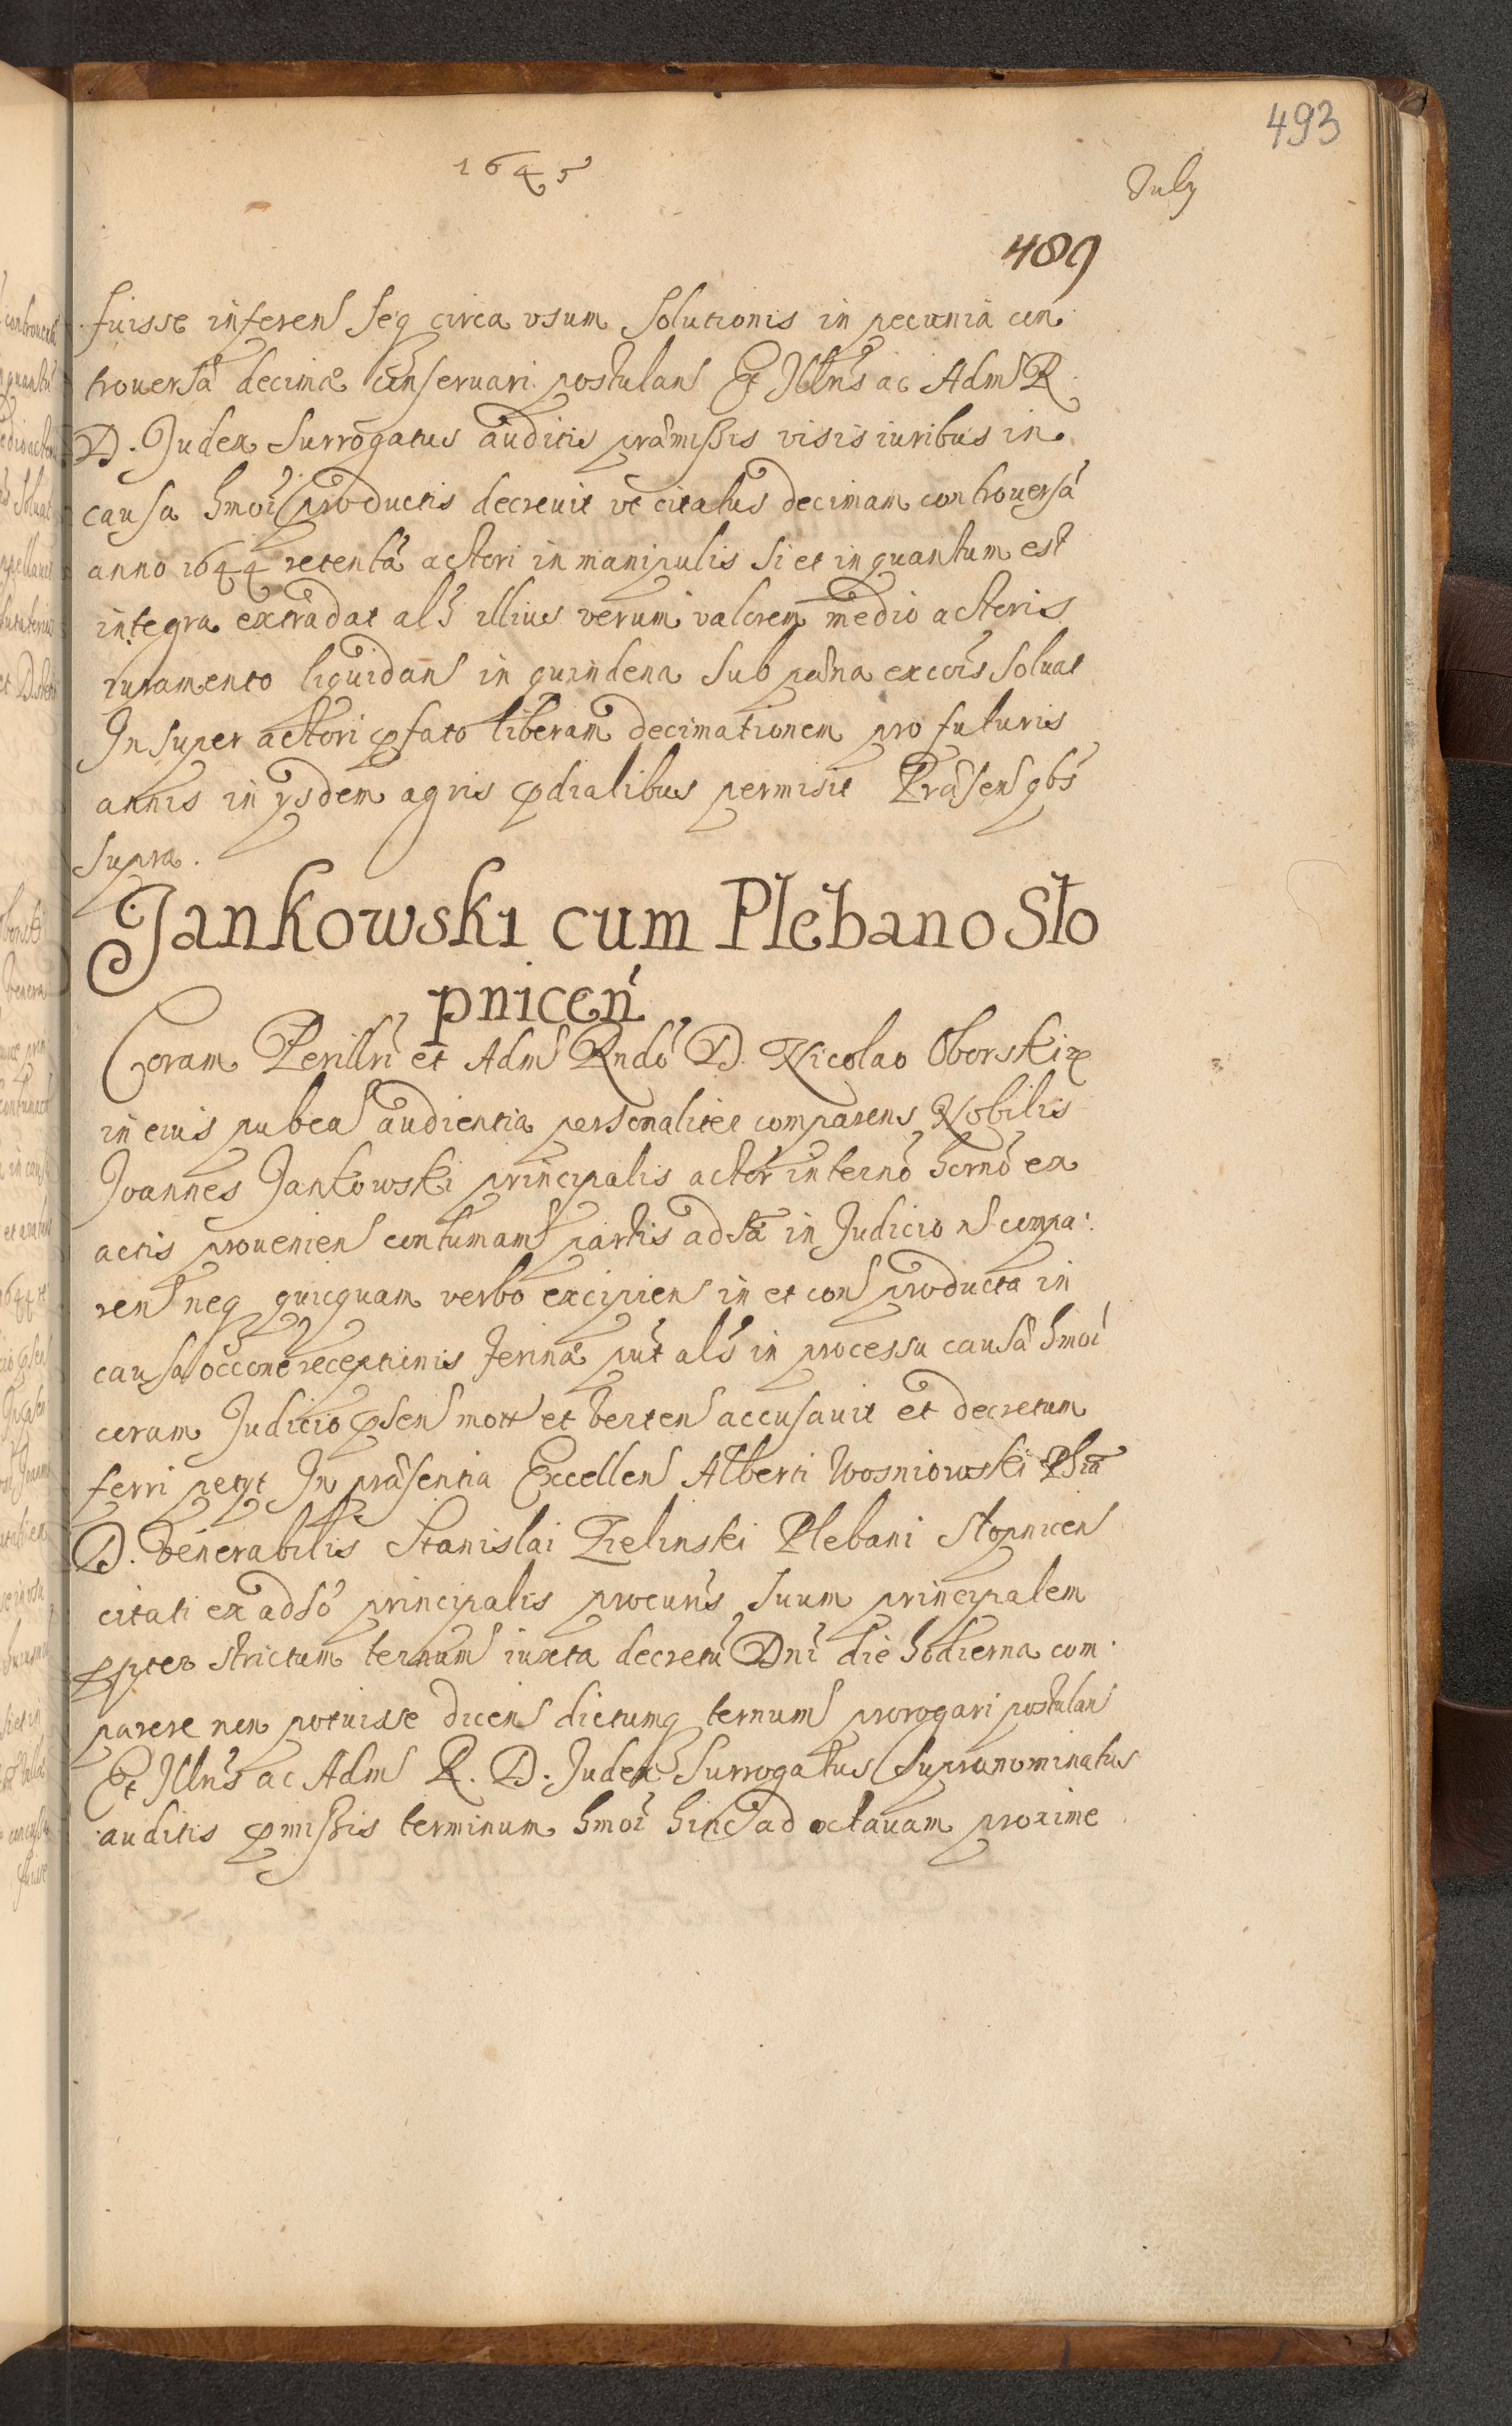 493
1645
July
489
fuisse inferens seq circa usum solutionis in pecunia con
trouersa decimæ conseruari postulans Et Illris ac Adm R
D. Judex Surrogatus auditis præmissis visis iuribus in
causa hmoi productis decreuit ut citatus decimam controuersa
anno 1644 retenta actori in manipulis si et inquantum est
integra extradat als illius verum valorem medio actoris
iuramento liquidans in quindena sub pæna excois soluat
Insuper actori pfato liberam decimationem pro futuris
annis in ysdem agris pdialibus permisit Præsen qbs
supra.
Jankowski cum Plebano Sło
pniceń
Coram Perillri et Adm Rndo D. Nicolao Oborski
in eius publca audientia personaliter comparens Nobilis
Joannes Jankowski principalis actor in terno horno ex
actis prouenien contumam partis adsa in Judicio n compa
ren neq quicquam verbo excipien in et con producta in
causa occone receptionis Jerinæ put als in processu causæ hmoi
coram Judicio psen mott et verten accusauit et decretum
ferri petyt In præsentia Excellen Alberti Wosniowski Phia
D. Venerabilis Stanislai Zielinski Plebani Słopnicen
citati ex adso principalis procuris suum principalem
ppter strictum ternum iuxta decretu Dni die hodierna com
parere non potuisse dicens dictumq ternum prorogari postulans
Et Illris ac Adm R. D. Judex Surrogatus supranominatus
auditis pmissis terminum hmoi hinc ad octauam proxime